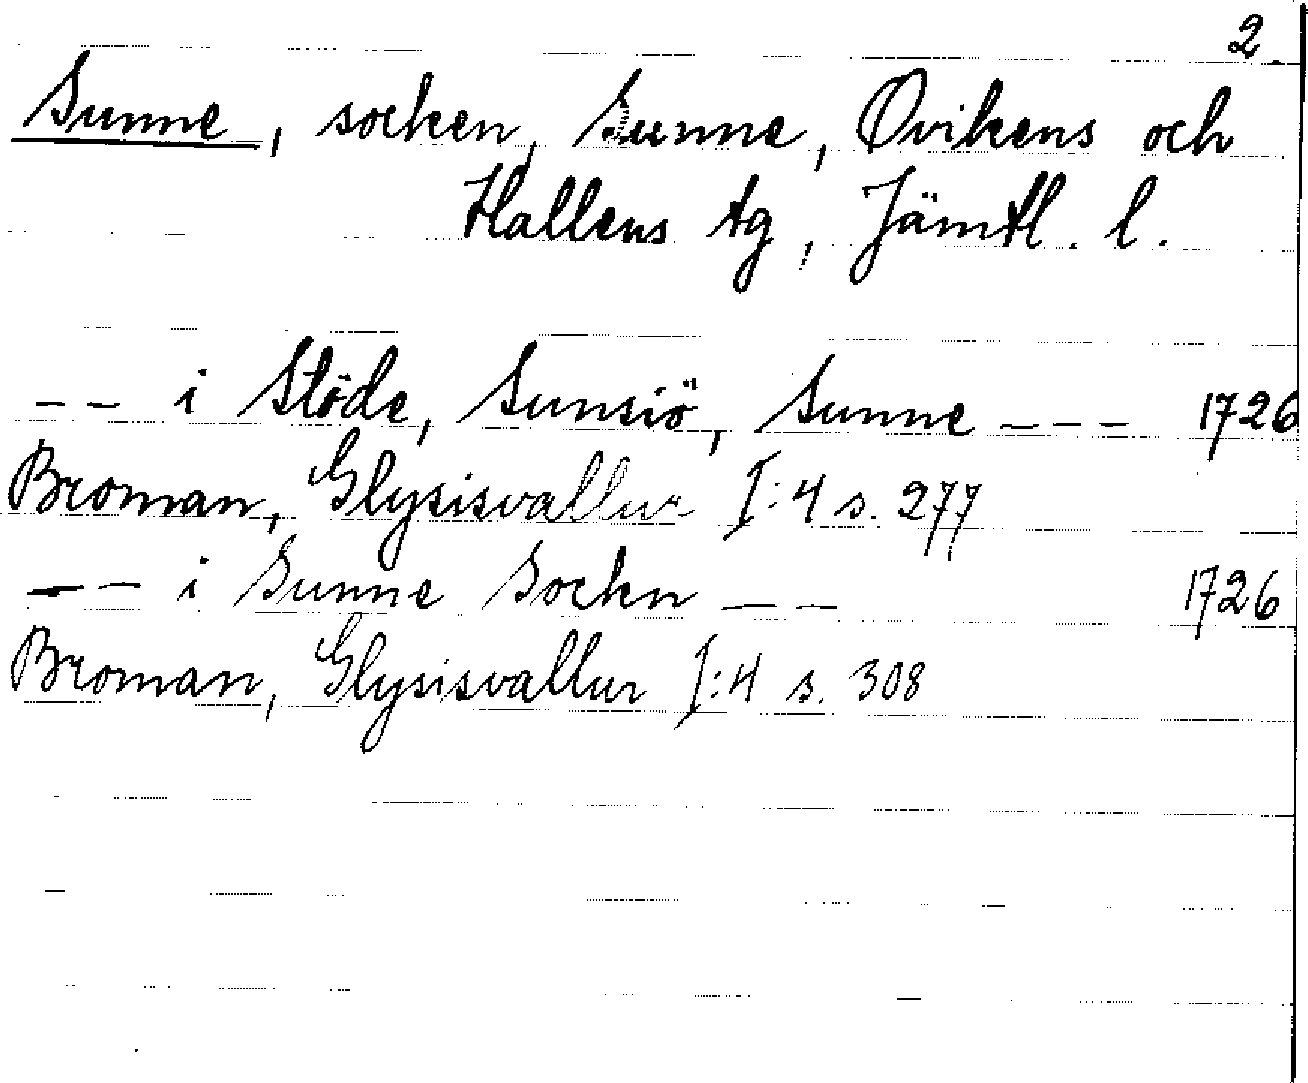 2.
Sunne, socken, Sunne, Ovikens och
Hallens tg, Jämtl. l.
-- i Stöde, Sunsiö, Sunne --- 1726
Broman, Glysisvallur I:4 s. 277
-- i Sunne Sockn -- 1726
Broman, Glysisvallur I:4 s. 308